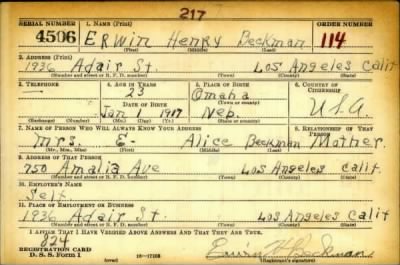 217
SERIAL NUMBER 1. NAME (Print) ORDER NUMBER
4506 Erwin Henry Beckman 114
(First) (Middle) (Last)
2. ADDRESS (Print)
1936 Adair St. Los Angeles Calif
(Number and street or R. F. D. number) (Town) (County) (State)
3. TELEPHONE 4. AGE IN YEARS 5. PLACE OF BIRTH 6. COUNTRY OF CITIZENSHIP
23 Omaha
DATE OF BIRTH (Town or county)
Jan 1 1917 Neb. U.S.A.
(Exchange) (Number) (Mo.) (Day) (Yr.) (State or country)
7. NAME OF PERSON WHO WILL ALWAYS KNOW YOUR ADDRESS 8. RELATIONSHIP OF THAT PERSON
Mrs. E- Alice Beckman Mother
(Mr., Mrs., Miss) (First) (Middle) (Last)
9. ADDRESS OF THAT PERSON
750 Amalia Ave Los Angeles Calif.
(Number and street or R. F. D. number) (Town) (County) (State)
10. EMPLOYER'S NAME
Self
11. PLACE OF EMPLOYMENT OR BUSINESS
1936 Adair St. Los Angeles Calif
(Number and street or R. F. D. number) (Town) (County) (State)
I AFFIRM THAT I HAVE VERIFIED ABOVE ANSWERS AND THAT THEY ARE TRUE.
824
REGISTRATION CARD
D. S. S. FORM 1 (over) 16-17105 (Registrant's signature)
Erwin H Beckman